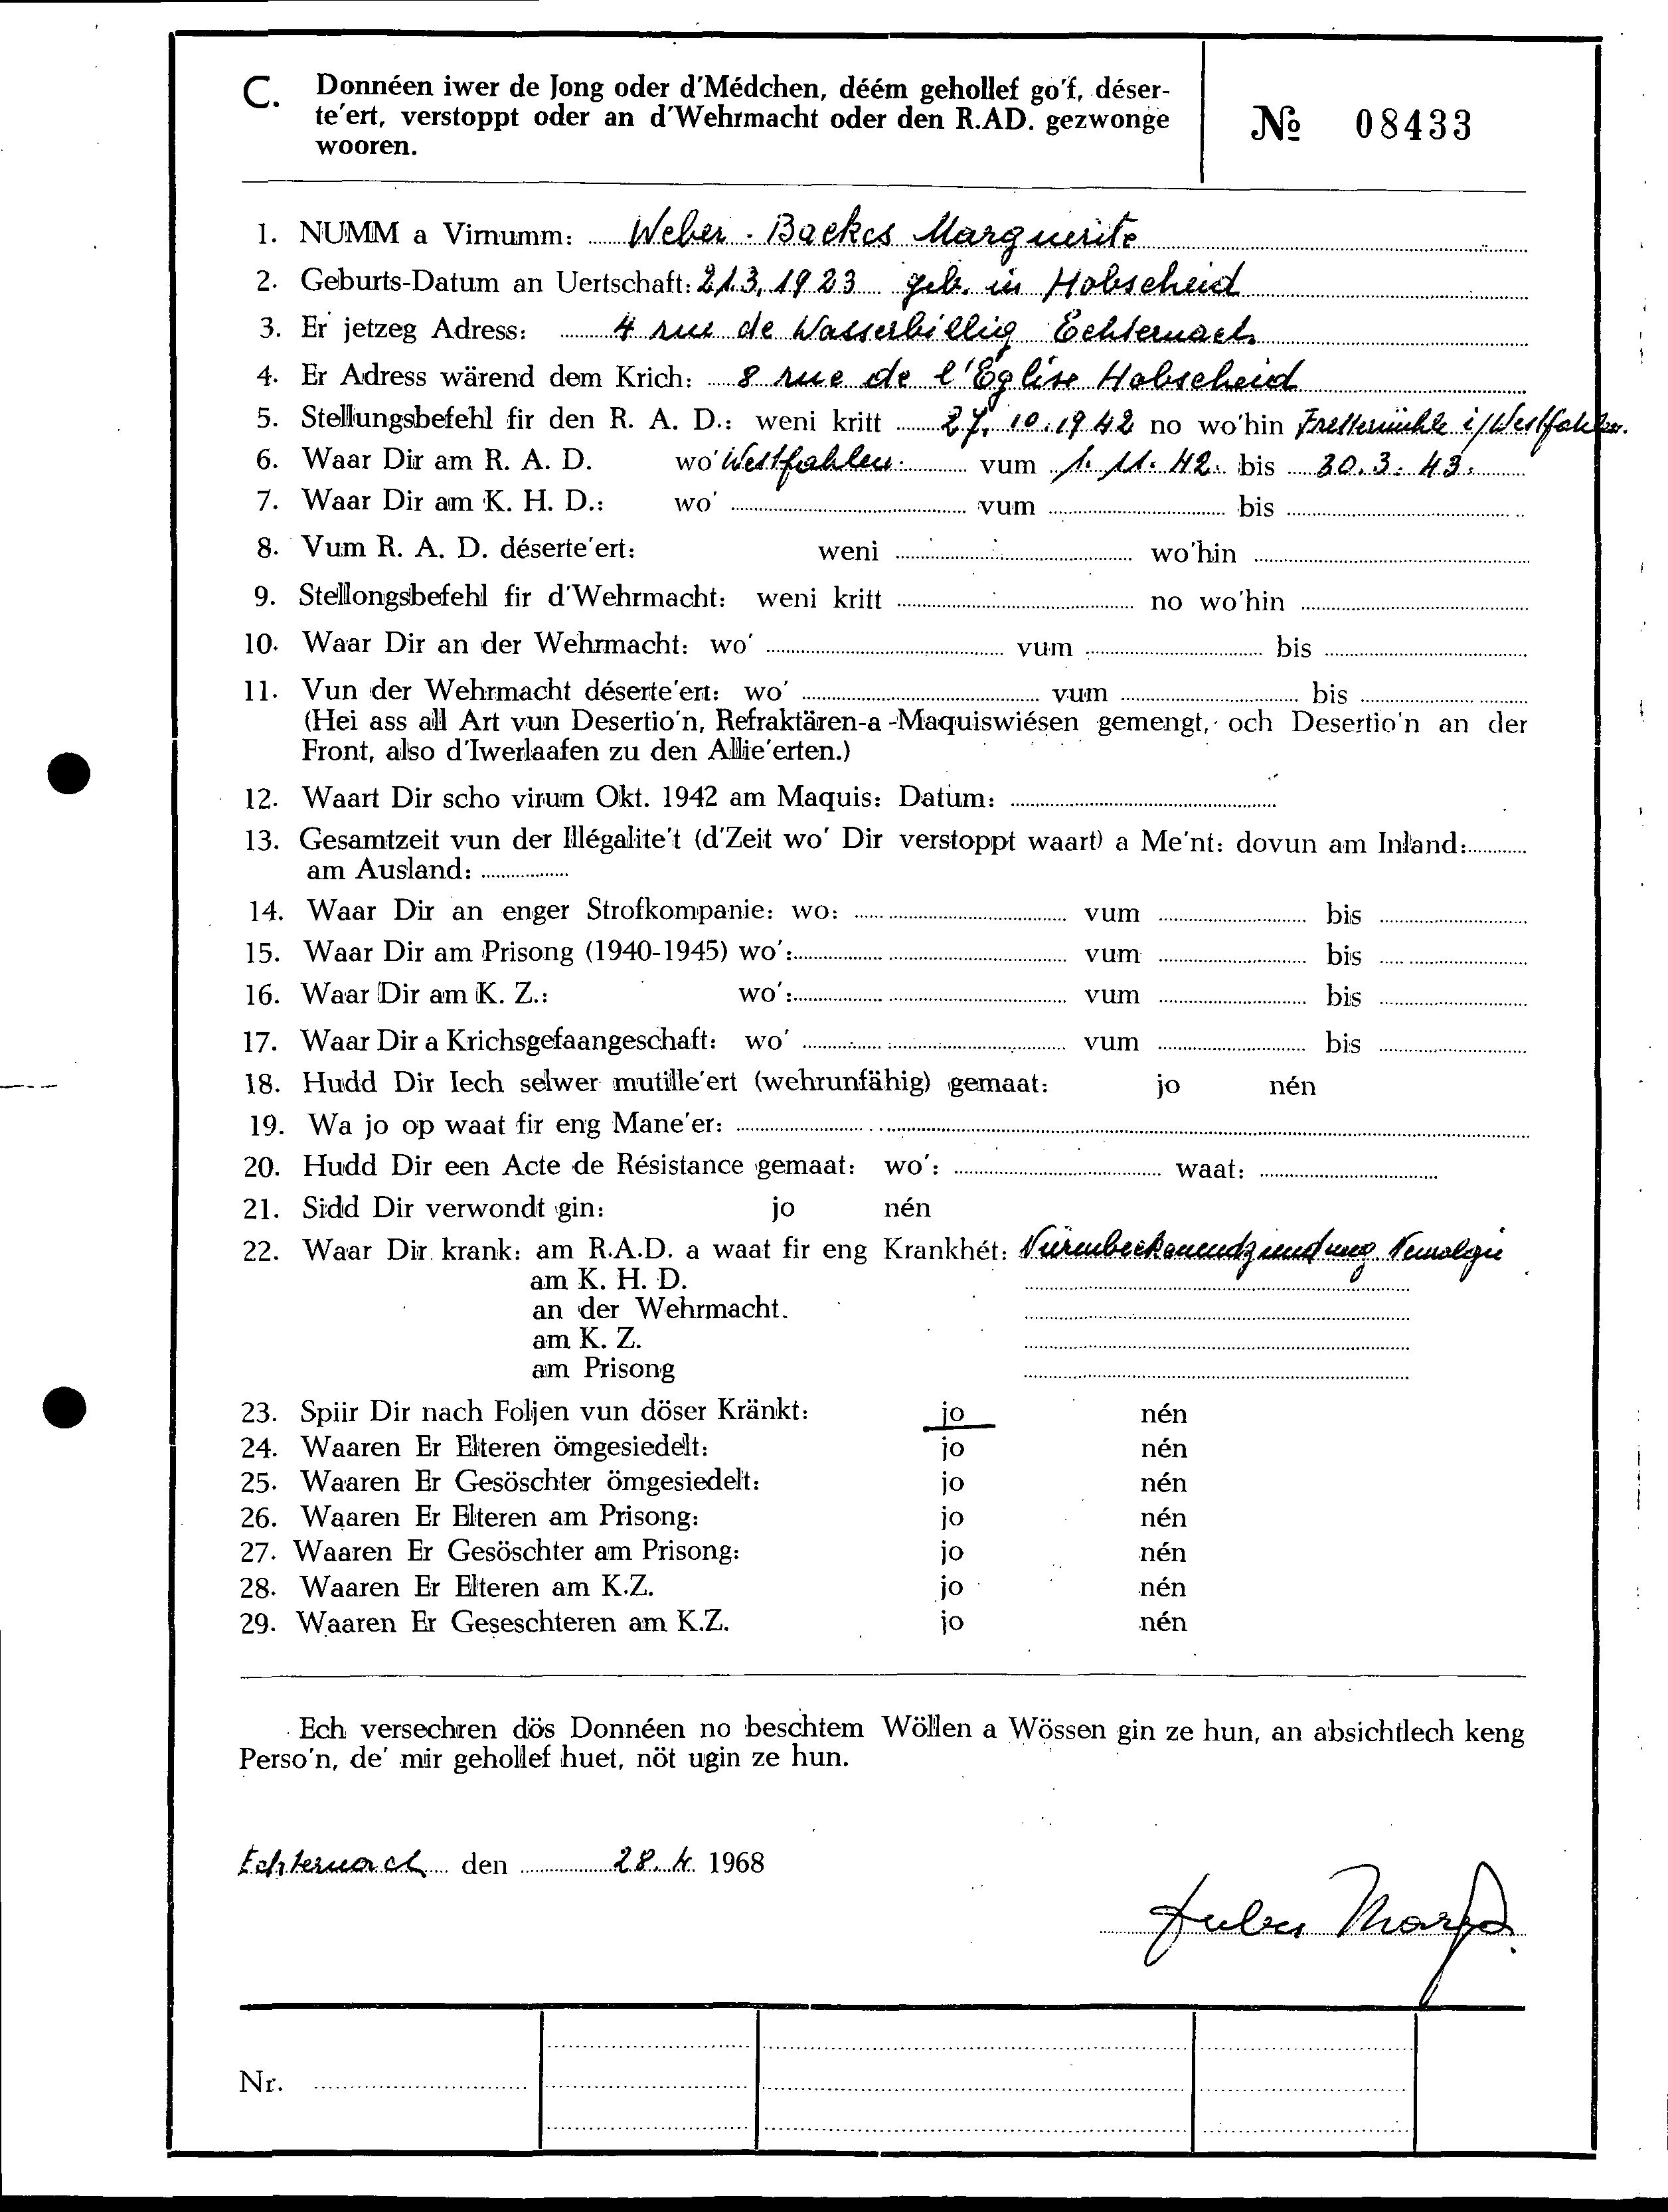 C. Donnéen iwer de Jong oder d'Médchen, déém gehollef go'f, déser-
te'ert, verstoppt oder an d'Wehrmacht oder den R.AD. gezwonge
wooren.
№ 08433
1. NUMM a Virnumm: Weber - Backes Marguerite
2. Geburts-Datum an Uertschaft: 21.3.1923 geb. in Hobscheid
3. Er jetzeg Adress: 4 rue de Wasserbillig Echternach
4. Er Adress wärend dem Krich: 8 rue de l'Eglise Hobscheid
5. Stellungsbefehl fir den R. A. D.: weni kritt 27.10.1942 no wo'hin i/Westfahlen.
6. Waar Dir am R. A. D. wo' Westfahlen vum 1. 11. 42. bis 30. 3. 43.
7. Waar Dir am K. H. D.: wo' vum bis
8. Vum R. A. D. déserte'ert: weni wo'hin
9. Stellongsbefehl fir d'Wehrmacht: weni kritt no wo'hin
10. Waar Dir an der Wehrmacht: wo' vum bis
11. Vun der Wehrmacht déserte'ert: wo' vum bis
(Hei ass all Art vun Desertio'n, Refraktären-a -Maquiswiésen gemengt, och Desertio'n an der
Front, also d'Iwerlaafen zu den Allie'erten.)
12. Waart Dir scho virum Okt. 1942 am Maquis: Datum:
13. Gesamtzeit vun der Illégalite't (d'Zeit wo' Dir verstoppt waart) a Me'nt: dovun am Inland:
am Ausland:
14. Waar Dir an enger Strofkompanie: wo: vum bis
15. Waar Dir am Prisong (1940-1945) wo': vum bis
16. Waar Dir am K. Z.: wo': vum bis
17. Waar Dir a Krichsgefaangeschaft: wo' vum bis
18. Hudd Dir Iech selwer mutille'ert (wehrunfähig) gemaat: jo nén
19. Wa jo op waat fir eng Mane'er:
20. Hudd Dir een Acte de Résistance gemaat: wo': waat:
21. Sidd Dir verwondt gin: jo nén
22. Waar Dir krank: am R.A.D. a waat fir eng Krankhét:
am K. H. D.
an der Wehrmacht.
am K. Z.
am Prisong
23. Spiir Dir nach Foljen vun döser Kränkt: jo nén
24. Waaren Er Elteren ömgesiedelt: jo nén
25. Waaren Er Gesöschter ömgesiedelt: jo nén
26. Waaren Er Elteren am Prisong: jo nén
27. Waaren Er Gesöschter am Prisong: jo nén
28. Waaren Er Elteren am K.Z. jo nén
29. Waaren Er Geseschteren am K.Z. jo nén
Ech versechren dös Donnéen no beschtem Wöllen a Wössen gin ze hun, an absichtlech keng
Perso'n, de' mir gehollef huet, nöt ugin ze hun.
Echternach den 28. 4. 1968
Nr.